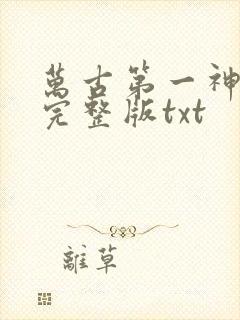 萬古第一神
完整版txt
離草